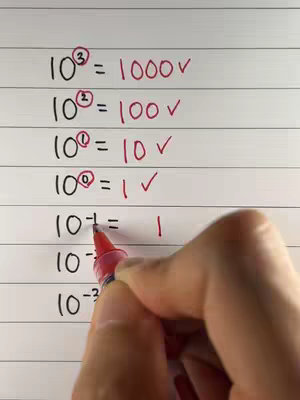 10³ = 1000 ✓
10² = 100 ✓
10¹ = 10 ✓
10⁰ = 1 ✓
10⁻¹ = 1
10⁻
10⁻³